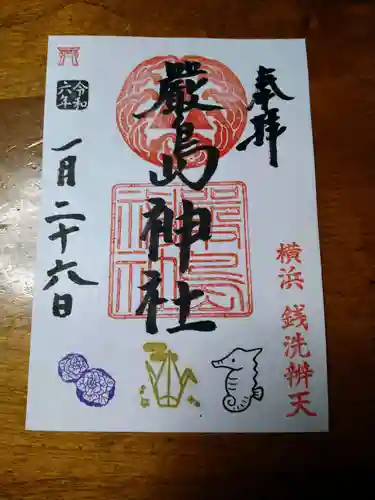 奉拝
嚴島神社
横浜 銭洗辨天
令和
六年
一月二十六日